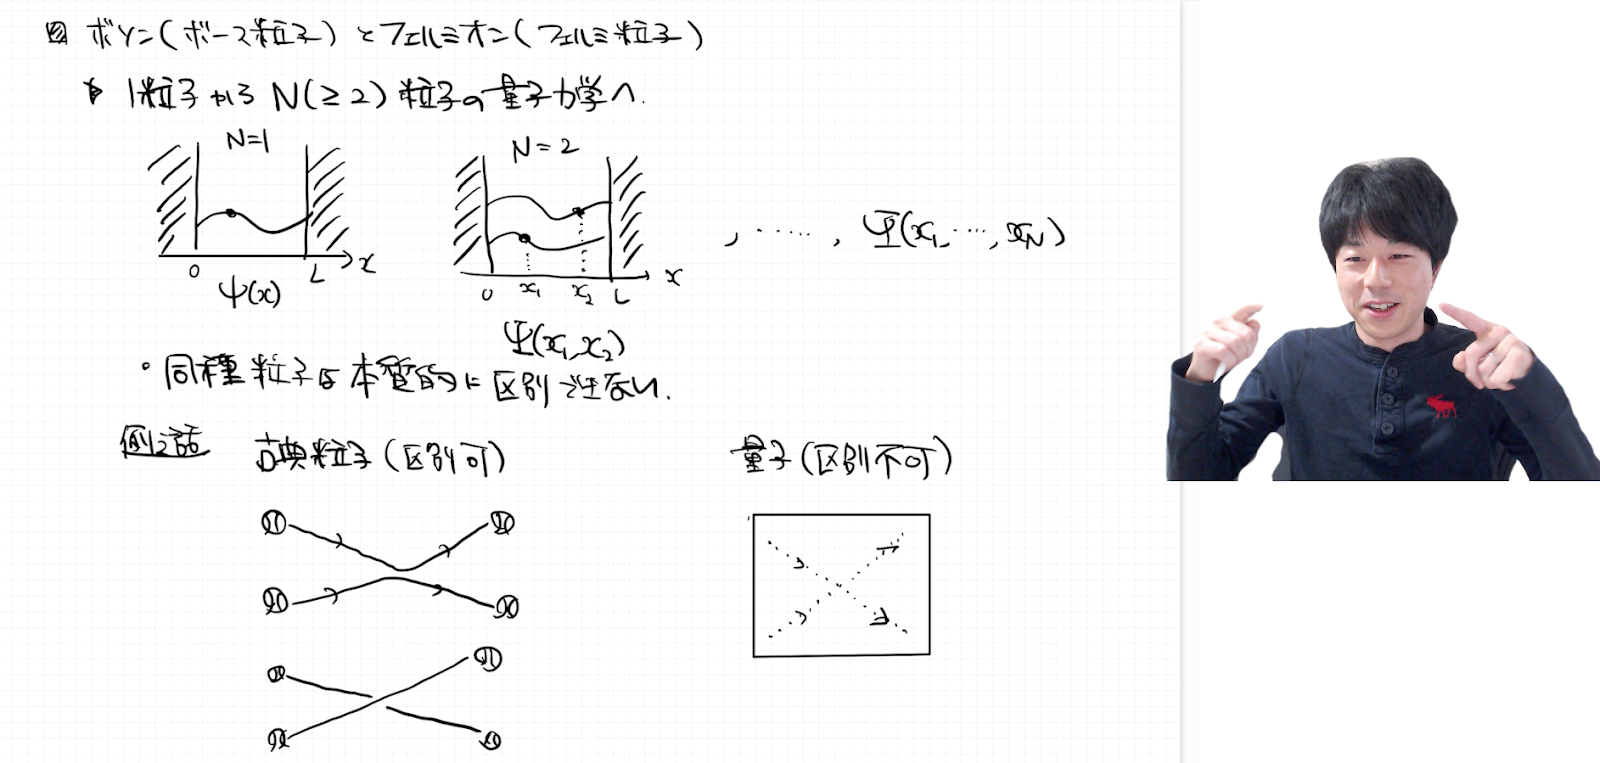 ボソン(ボース粒子)とフェルミオン(フェルミ粒子)
1粒子から N(≥2)粒子の量子力学へ.
N=1
N=2
0 L x
0 x₁ x₂ L x
, ⋯⋯ , Ψ(x₁, ⋯, x_N)
ψ(x)
Ψ(x₁, x₂)
・同種粒子は本質的に区別できない.
例え話
古典粒子(区別可)
量子(区別不可)